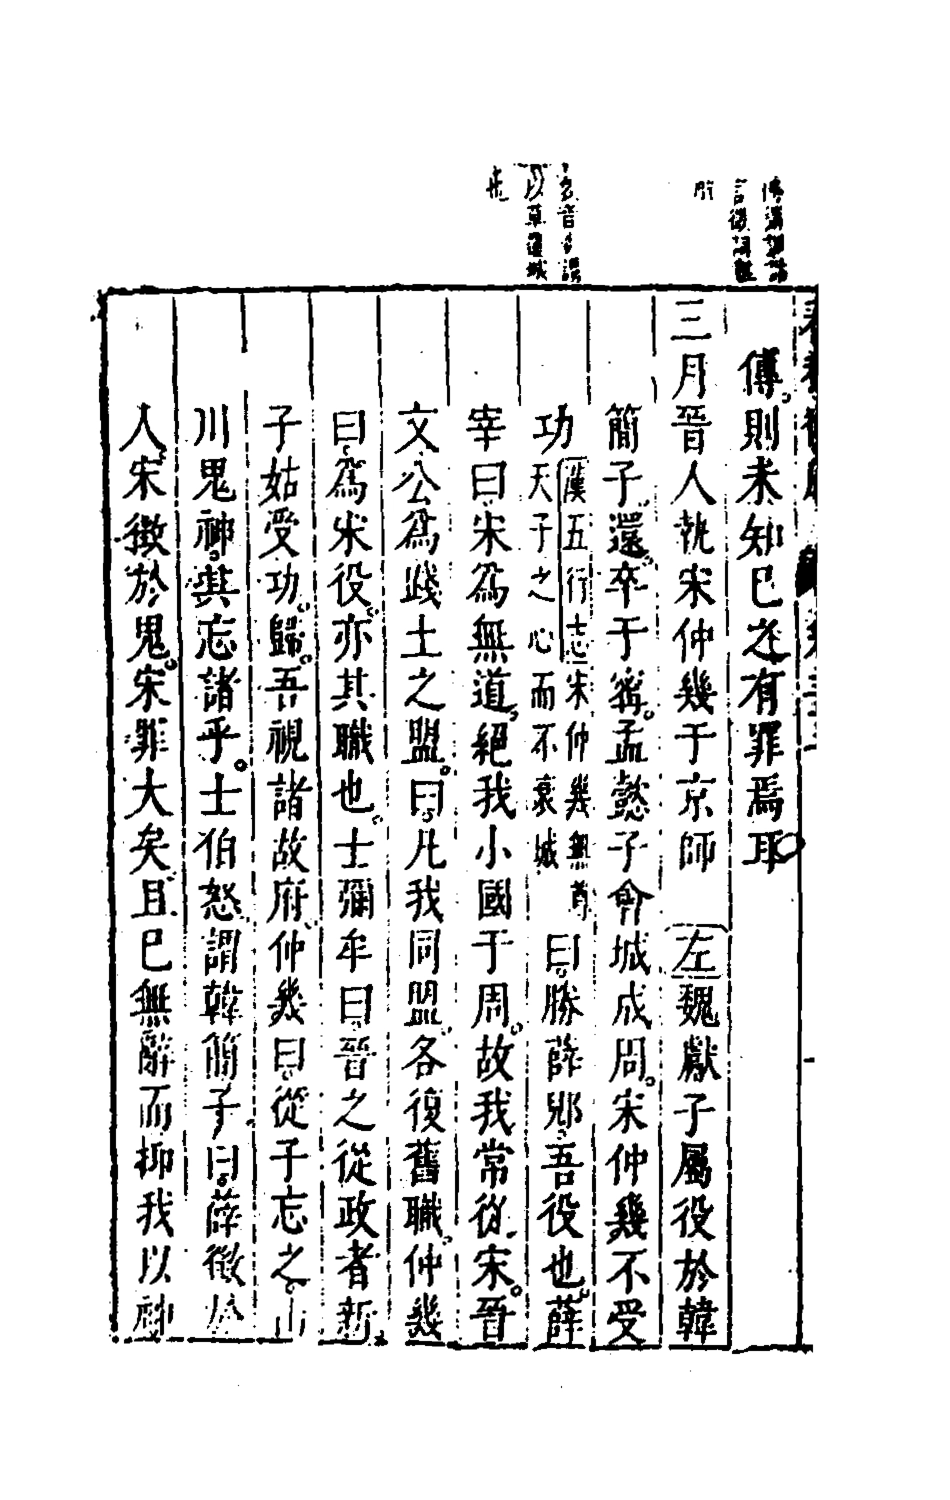 傳則未知己之有罪焉耳
三月晉人執宋仲幾于京師　左魏獻子屬役於韓
簡子還卒于甯孟懿子會城成周宋仲幾不受
功漢五行志宋仲幾無尊天子之心而不衰城曰滕薛郳吾役也薛
宰曰宋爲無道絕我小國于周故我常從宋晉
文公爲踐土之盟曰凡我同盟各復舊職仲幾
曰爲宋役亦其職也士彌牟曰晉之從政者新
子姑受功歸吾視諸故府仲幾曰從子忘之山
川鬼神其忘諸乎士伯怒謂韓簡子曰薛徵於
人宋徵於鬼宋罪大矣且已無辭而抑我以神